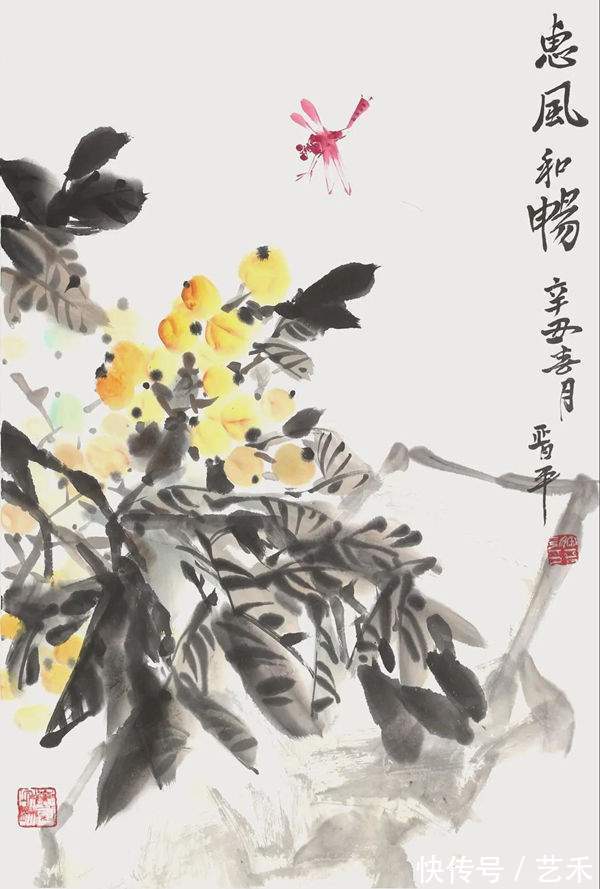 惠風和暢 辛丑春月 晋平
快传号 / 艺禾